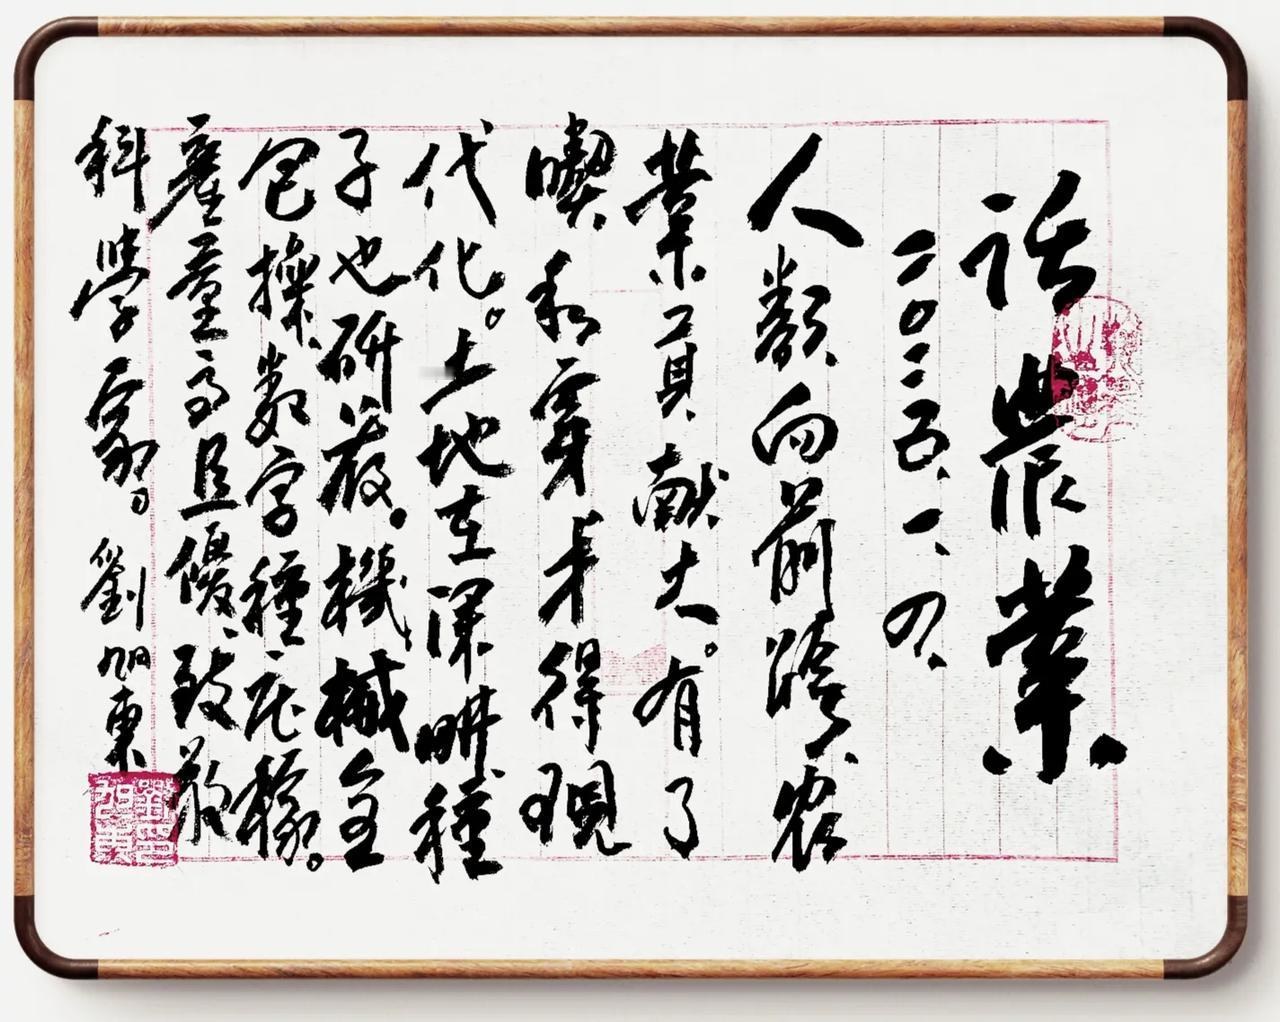 話農業
二〇二五、一、九、
人類向前躋農
業貢獻大。有了
喫和穿才得現
代化。土地在深畊種
子也研發。機械全
包操、数字種庄稼。
產量高且優、致敬
科學家。劉旭東